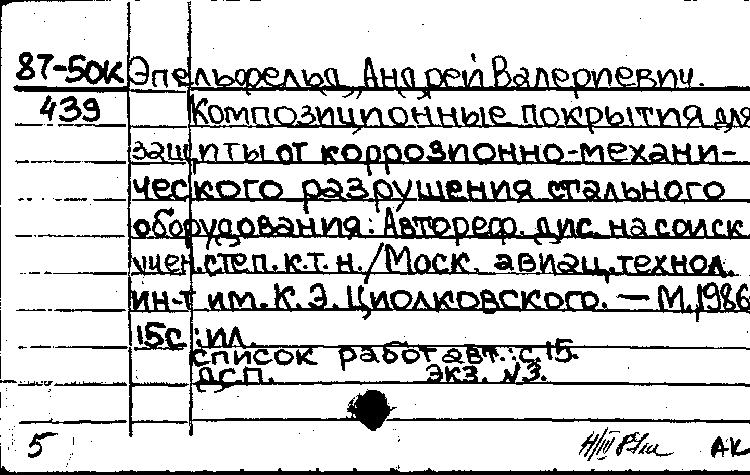 87-50К Эпельфельд, Андрей Валериевич.
439 Композиционные покрытия для
защиты от коррозионно-механи-
ческого разрушения стального
оборудования: Автореф. дис. на соиск
учен. степ. к.т.н. / Моск. авиац. технол.
ин-т им. К.Э. Циолковского. — М., 1986
15с.: ил.
список работ авт.: с. 15.
ДСП. экз. №3.
5 АК